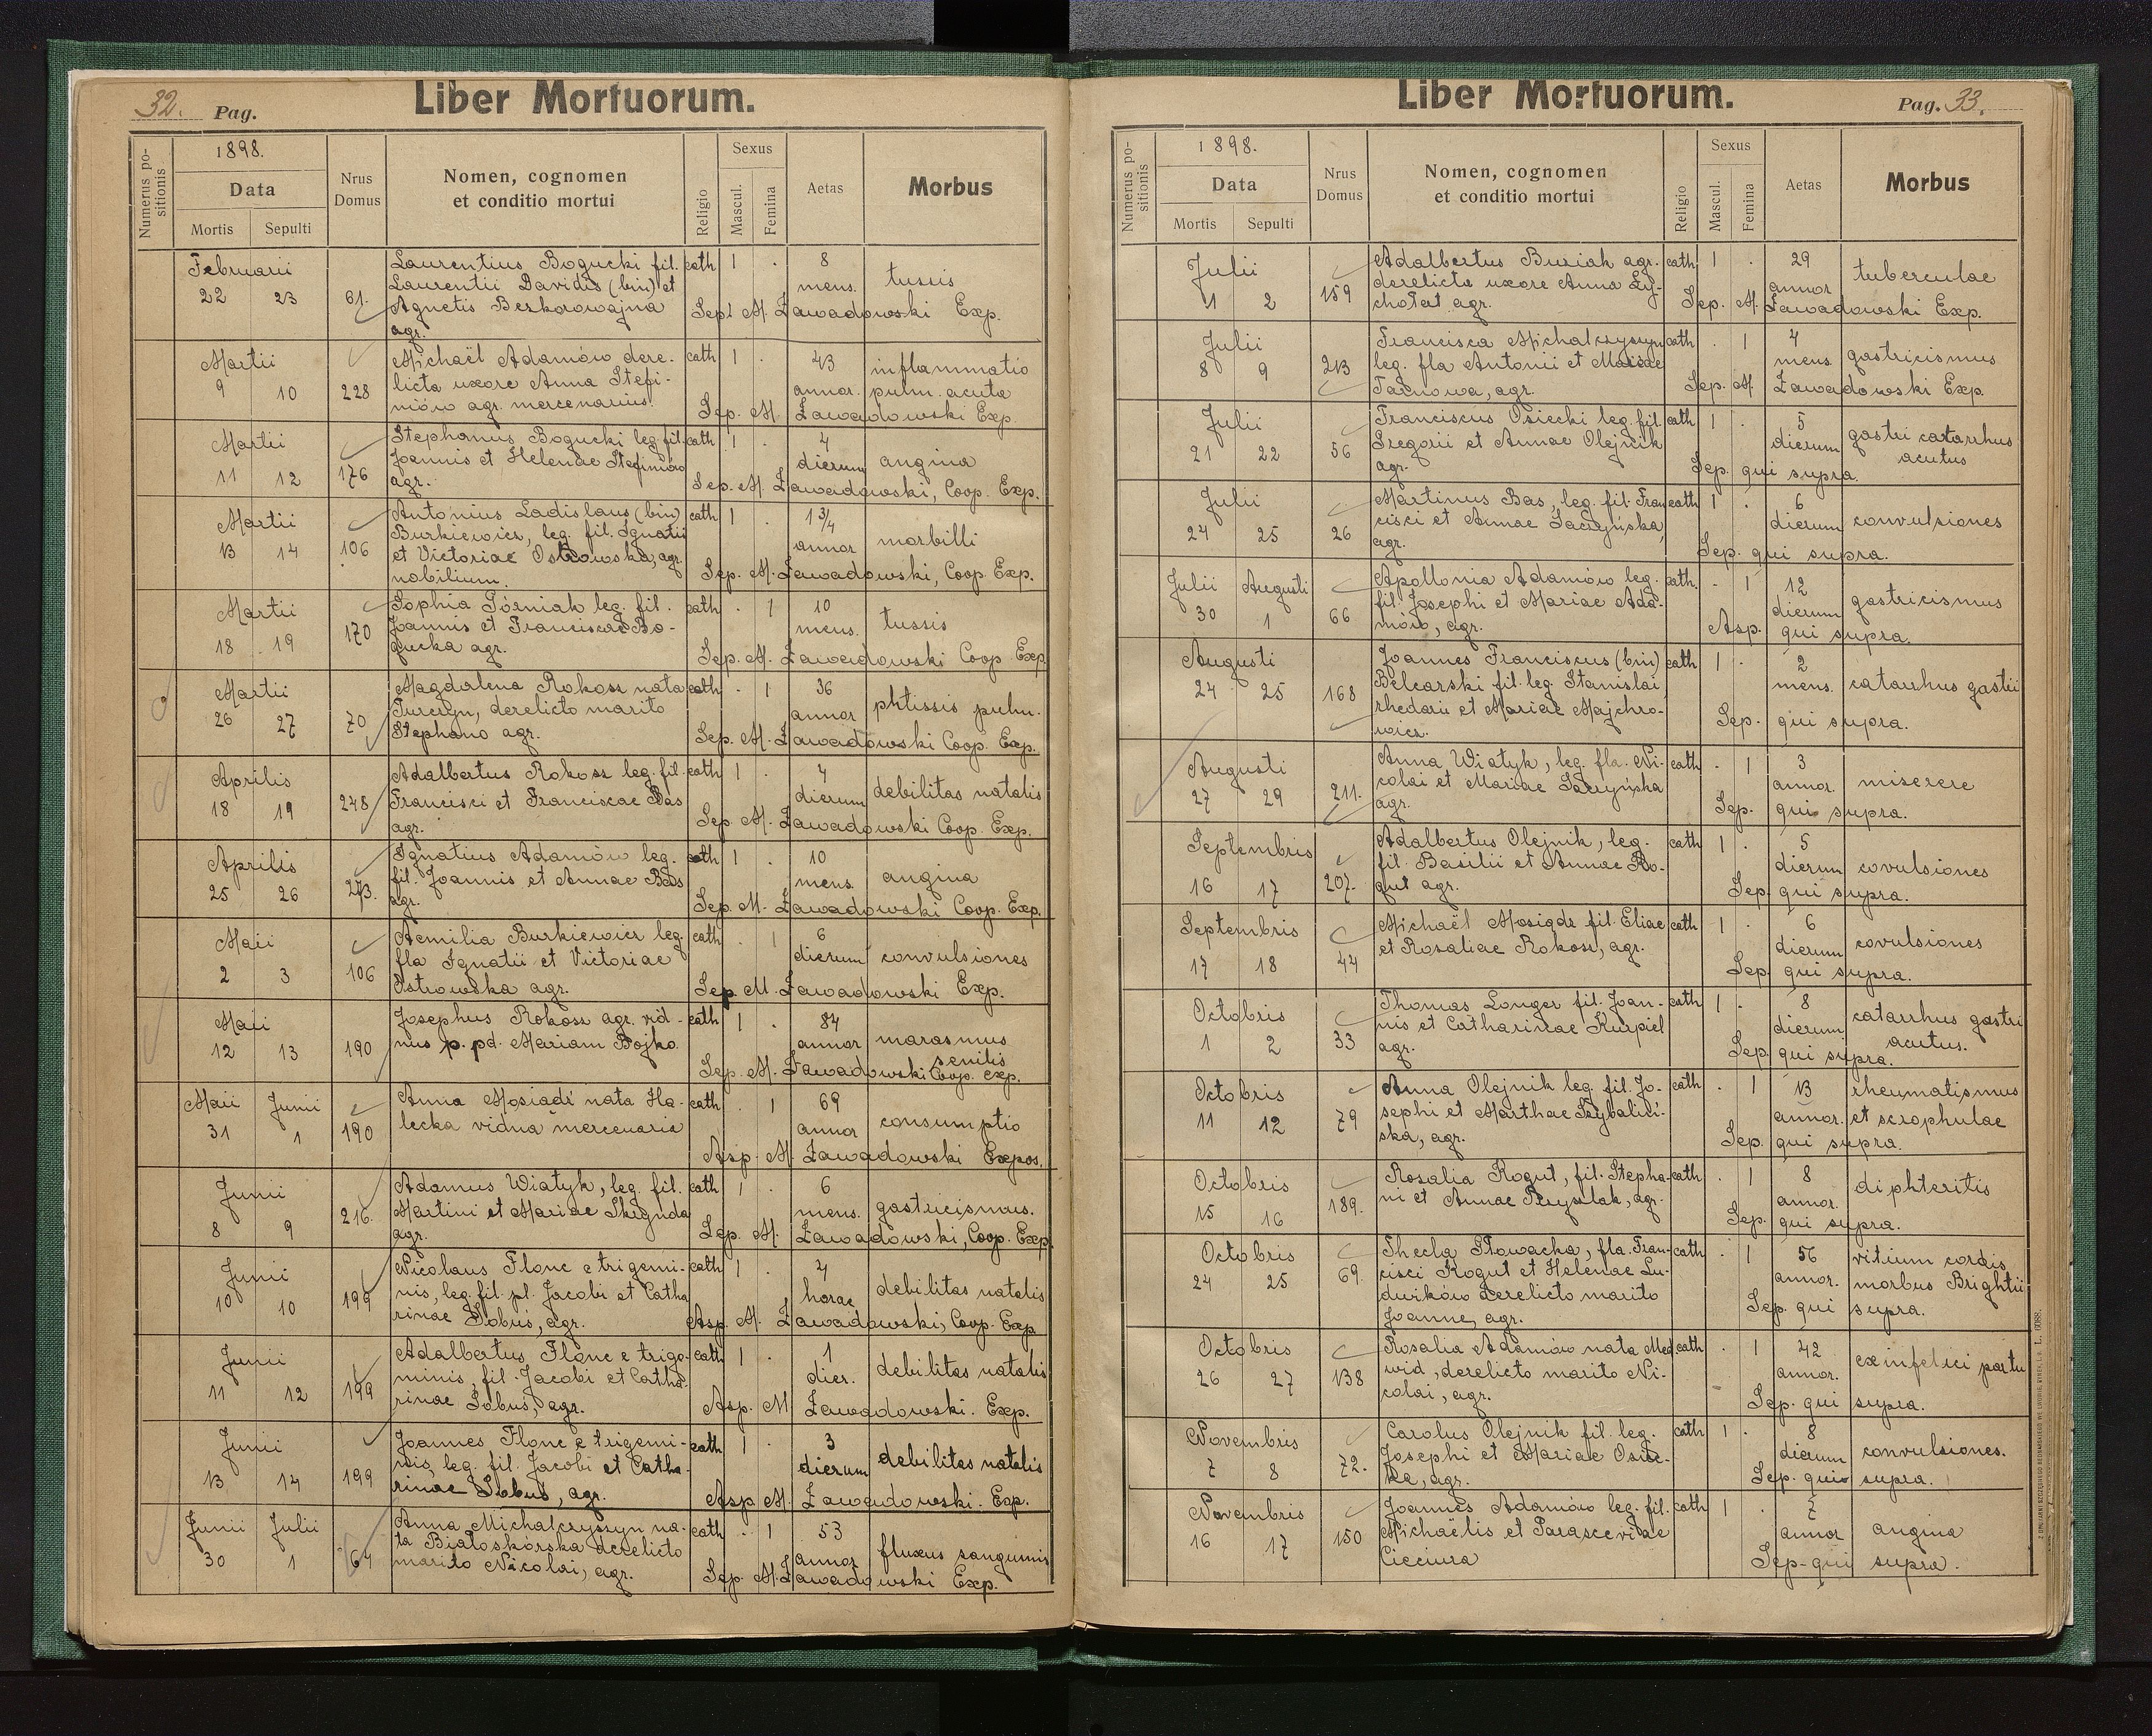 32. Pag.
Liber Mortuorum.
Numerus positionis
1898.
Data
Mortis Sepulti
Nrus Domus
Nomen, cognomen
et conditio mortui
Religio
Sexus
Mascul. Femina
Aetas
Morbus
Februarii
22 23 61.
Laurentius Bogucki fil.
Laurentii Davidis (bin) et
Agnetis Bezkorowajna
agr.
cath 1 . 8 mens. tussis
Sep. M. Zawadowski Exp.
Martii
9 10 228
Michaël Adamów dere-
licta uxore Anna Stefi-
niów agr. mercenarius.
cath 1 . 43 annor. inflammatio
pulm. acuta
Sep. M. Zawadowski Exp.
Martii
11 12 176
Stephanus Bogucki leg. fil.
Joannis et Helenae Stefiniów
agr.
cath 1 . 4 dierum angina
Sep. M. Zawadowski, Coop. Exp.
Martii
13 14 106
Antonius Ladislaus (bin)
Burkiewicz, leg. fil. Ignatii
et Victoriae Ostrowska, agr.
nobilium.
cath 1 . 1 3/4 annor morbilli
Sep. M. Zawadowski, Coop. Exp.
Martii
18 19 170
Sophia Górniak leg. fil.
Joannis et Franciscae Bo-
gucka agr.
cath . 1 10 mens. tussis
Sep. M. Zawadowski Coop. Exp.
Martii
26 27 70
Magdalena Rokosz nata
Turczyn, derelicto marito
Stephano agr.
cath . 1 36 annor phtissis pulm.
Sep. M. Zawadowski Coop. Exp.
Aprilis
18 19 248
Adalbertus Rokosz leg. fil.
Francisci et Franciscae Bas
agr.
cath 1 . 4 dierum debilitas natalis
Sep. M. Zawadowski Coop. Exp.
Aprilis
25 26 273.
Ignatius Adamów leg.
fil. Joannis et Annae Bas
agr.
cath 1 . 10 mens. angina
Sep. M. Zawadowski Coop. Exp.
Maii
2 3 106
Aemilia Burkiewicz leg.
fla Ignatii et Victoriae
Ostrowska agr.
cath . 1 6 dierum convulsiones
Sep. M. Zawadowski Exp.
Maii
12 13 190
Josephus Rokosz agr. vid-
nus p. pd. Mariam Bojko.
cath 1 . 84 annor marasmus
senilis
Sep. M. Zawadowski Coop. Exp.
Maii Junii
31 1 190
Anna Mosiadz nata Ha-
lecka vidua mercenaria
cath . 1 69 annor consumptio
Asp. M. Zawadowski Expos.
Junii
8 9 216.
Adamus Wiatyk, leg. fil.
Martini et Mariae Skrynda
agr.
cath 1 . 6 mens. gastricismus.
Sep. M. Zawadowski, Coop. Exp.
Junii
10 10 199
Nicolaus Flonc e trigemi-
nis, leg. fil. pl. Jacobi et Catha
rinae Sobuś, agr.
cath 1 . 4 horae debilitas natalis
Asp. M. Zawadowski, Coop. Exp.
Junii
11 12 199
Adalbertus Flonc e trige-
minis, fil. Jacobi et Catha-
rinae Sobuś, agr.
cath 1 . 1 dier. debilitas natalis
Asp. M. Zawadowski. Exp.
Junii
13 14 199
Joannes Flonc e trigemi-
nis, leg. fil. Jacobi et Catha-
rinae Sobuś, agr.
cath 1 . 3 dierum debilitas natalis
Asp. M. Zawadowski. Exp.
Junii Julii
30 1 64
Anna Michalczyszyn na-
ta Białoskórska derelicto
marito Nicolai, agr.
cath . 1 53 annor fluxus sanguinis
Sep. M. Zawadowski Exp.
Liber Mortuorum.
Pag. 33.
Numerus positionis
1898.
Data
Mortis Sepulti
Nrus Domus
Nomen, cognomen
et conditio mortui
Religio
Sexus
Mascul. Femina
Aetas
Morbus
Julii
1 2 159
Adalbertus Buziak agr.
derelicta uxore Anna Ly-
chołat agr.
cath 1 . 29 annor tuberculae
Sep. M. Zawadowski Exp.
Julii
8 9 213
Francisca Michalczyszyn
leg. fla Antonii et Mariae
Tarnowa, agr.
cath . 1 4 mens. gastricismus
Sep. M. Zawadowski Exp.
Julii
21 22 56
Franciscus Osiecki leg. fil.
Gregorii et Annae Olejnik
agr.
cath 1 . 5 dierum gastri catarrhus
acutus
Sep. qui supra.
Julii
24 25 26
Martinus Bas, leg. fil. Fran
cisci et Annae Saczyńska,
agr.
cath 1 . 6 dierum convulsiones
Sep. qui supra.
Julii Augusti
30 1 66
Apollonia Adamów leg.
fil. Josephi et Mariae Ada-
mów, agr.
cath. . 1 12 dierum gastricismus
Asp. qui supra.
Augusti
24 25 168
Joannes Franciscus (bin)
Belcarski fil. leg. Stanislai,
rhedarii et Mariae Majchro-
wicz.
cath 1 . 2 mens. catarrhus gastrii
Sep. qui supra.
Augusti
27 29 211.
Anna Wiatyk, leg. fla. Ni-
colai et Mariae Saczyńska
agr.
cath . 1 3 annor. miserere
Sep. qui supra.
Septembris
16 17 207.
Adalbertus Olejnik, leg.
fil. Basilii et Annae Ro-
gut agr.
cath 1 . 5 dierum covulsiones
Sep. qui supra.
Septembris
17 18 44
Michaël Mosiądz fil. Eliae
et Rosaliae Rokosz, agr.
cath 1 . 6 dierum covulsiones
Sep. qui supra.
Octobris
1 2 33
Thomas Longer fil. Joan-
nis et Catharinae Kurpiel
agr.
cath 1 . 8 dierum catarrhus gastri
acutus.
Sep. qui supra.
Octobris
11 12 79
Anna Olejnik leg. fil. Jo-
sephi et Marthae Szybaliń-
ska, agr.
cath . 1 13 annor. rheumatismus
et scrophulae
Sep. qui supra.
Octobris
15 16 189.
Rosalia Kogut, fil. Stepha-
ni et Annae Przyszlak, agr.
cath . 1 8 annor. diphteritis
Sep. qui supra.
Octobris
24 25 69.
Thecla Słowacka, fla. Fran-
cisci Kogut et Helenae Lu-
dwików derelicto marito
Joanne, agr.
cath . 1 56 annor. vitium cordis
morbus Brightii
Sep. qui supra.
Octobris
26 27 138
Rosalia Adamów nata Med
wid, derelicto marito Ni-
colai, agr.
cath . 1 42 annor. ex infelici partu
Sep. qui supra.
Novembris
7 8 72.
Carolus Olejnik fil. leg.
Josephi et Mariae Osiec-
ka, agr.
cath 1 . 8 dierum convulsiones.
Sep. qui supra.
Novembris
16 17 150
Joannes Adamów leg. fil.
Michaëlis et Parascevidae
Cicciura
cath 1 . 7 annor angina
Sep. qui supra.